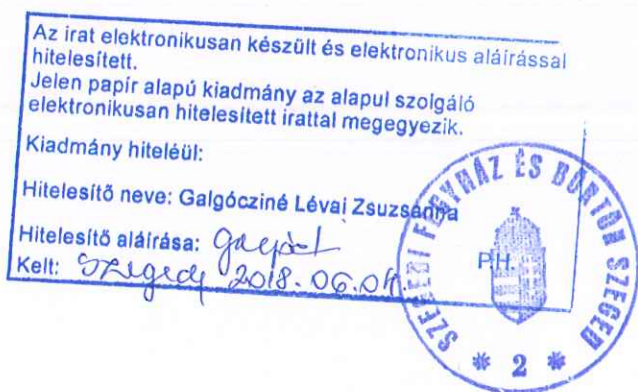 Az irat elektronikusan készült és elektronikus aláírással
hitelesített.
Jelen papír alapú kiadmány az alapul szolgáló
elektronikusan hitelesített irattal megegyezik.
Kiadmány hiteléül:
Hitelesítő neve: Galgócziné Lévai Zsuzsánna
Hitelesítő aláírása:
Kelt: Szeged, 2018. 06.
PH.
SZEGEDI FEGYHÁZ ÉS BÖRTÖN SZEGED
* 2 *